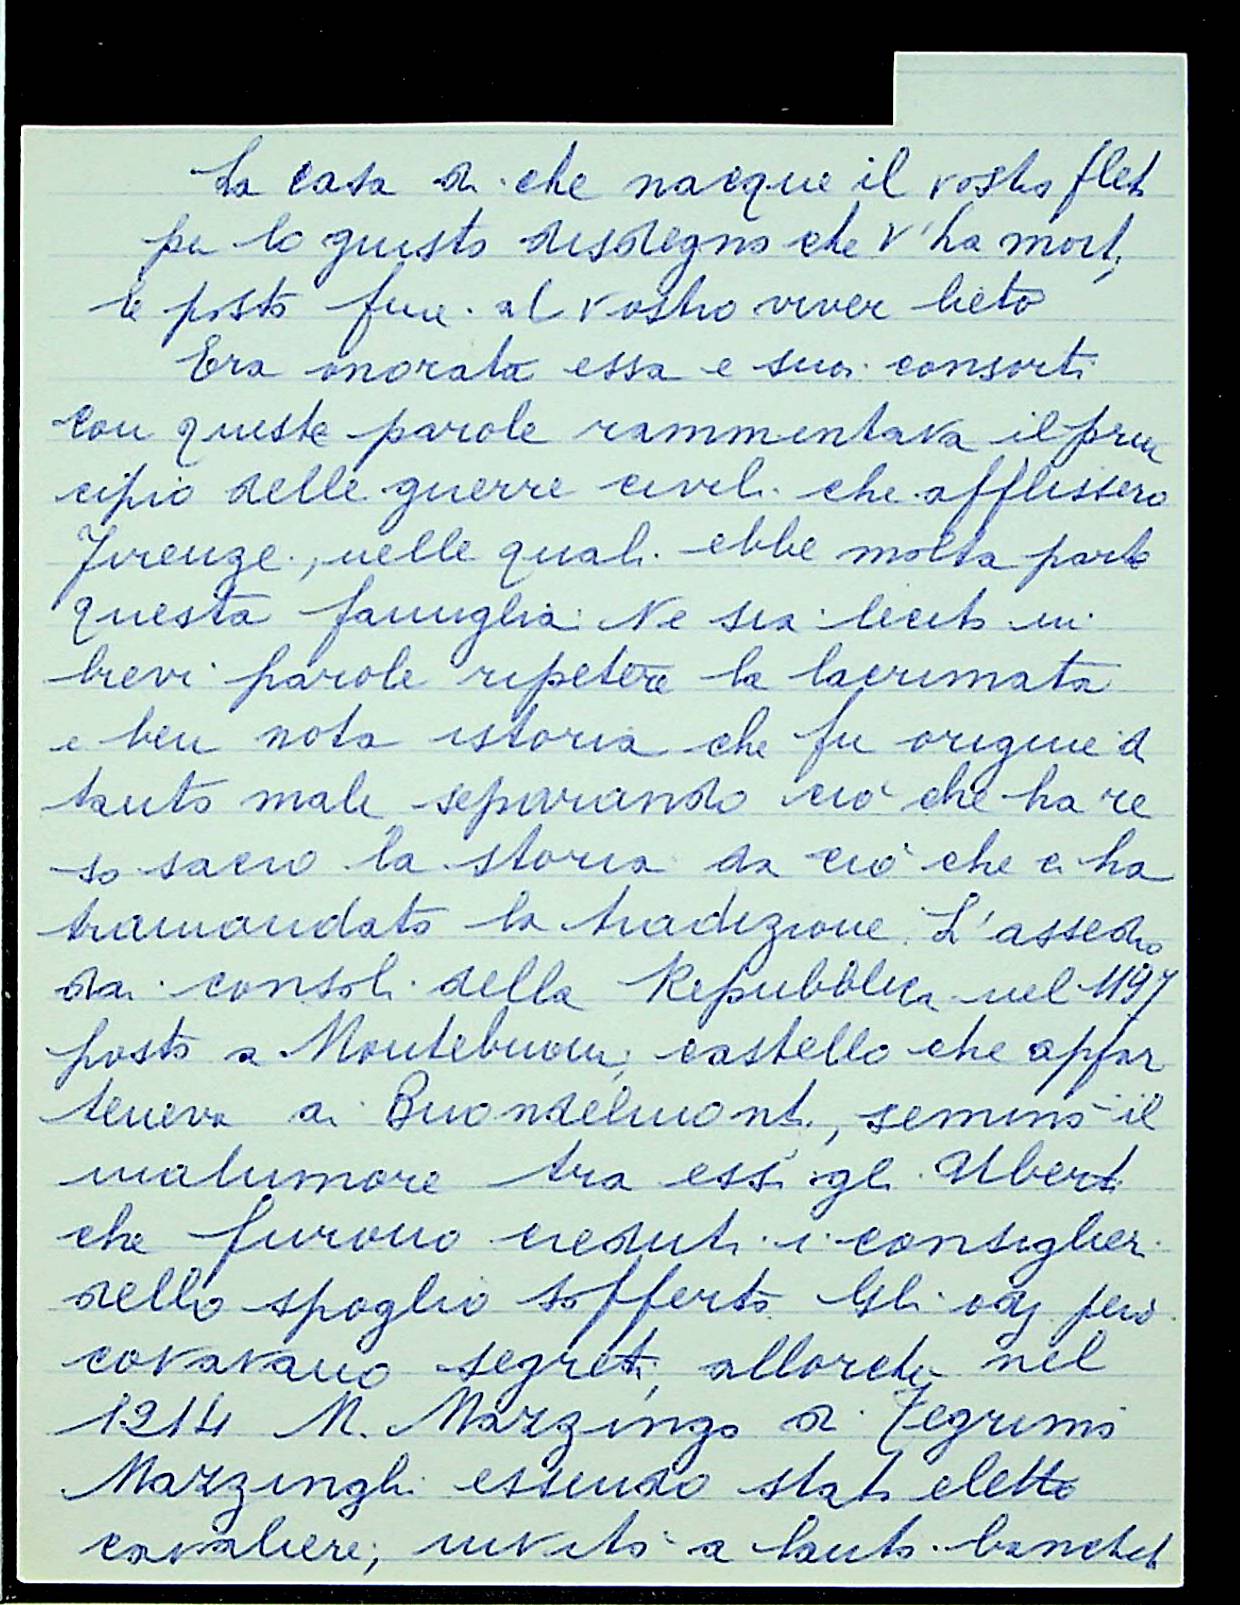 La casa di che nacque il vostro flet
per lo giusto disdegno che v'ha mort,
e posto fine al vostro viver lieto
Era onorata essa e suoi consorti
Con queste parole rammentava il prin
cipio delle guerre civili che afflissero
Firenze, nelle quali ebbe molta parte
questa famiglia. Ne sia lecito in
brevi parole ripetere la lacrimata
e ben nota istoria che fu origine d
tanto male separando ciò che ha re
so sacro la storia da ciò che ci ha
tramandato la tradizione. L'assedio
dai consoli della Repubblica nel 1197
posto a Montebuoni, castello che appar
teneva ai Buondelmonti, seminò il
malumore tra essi gli Uberti
che furono creduti i consiglieri
dello spoglio sofferto Gli odj però
covavano segreti, allorché nel
1214 M. Mazzingo di Tegrimo
Mazzinghi essendo stato eletto
cavaliere, invitò a lauto banchet